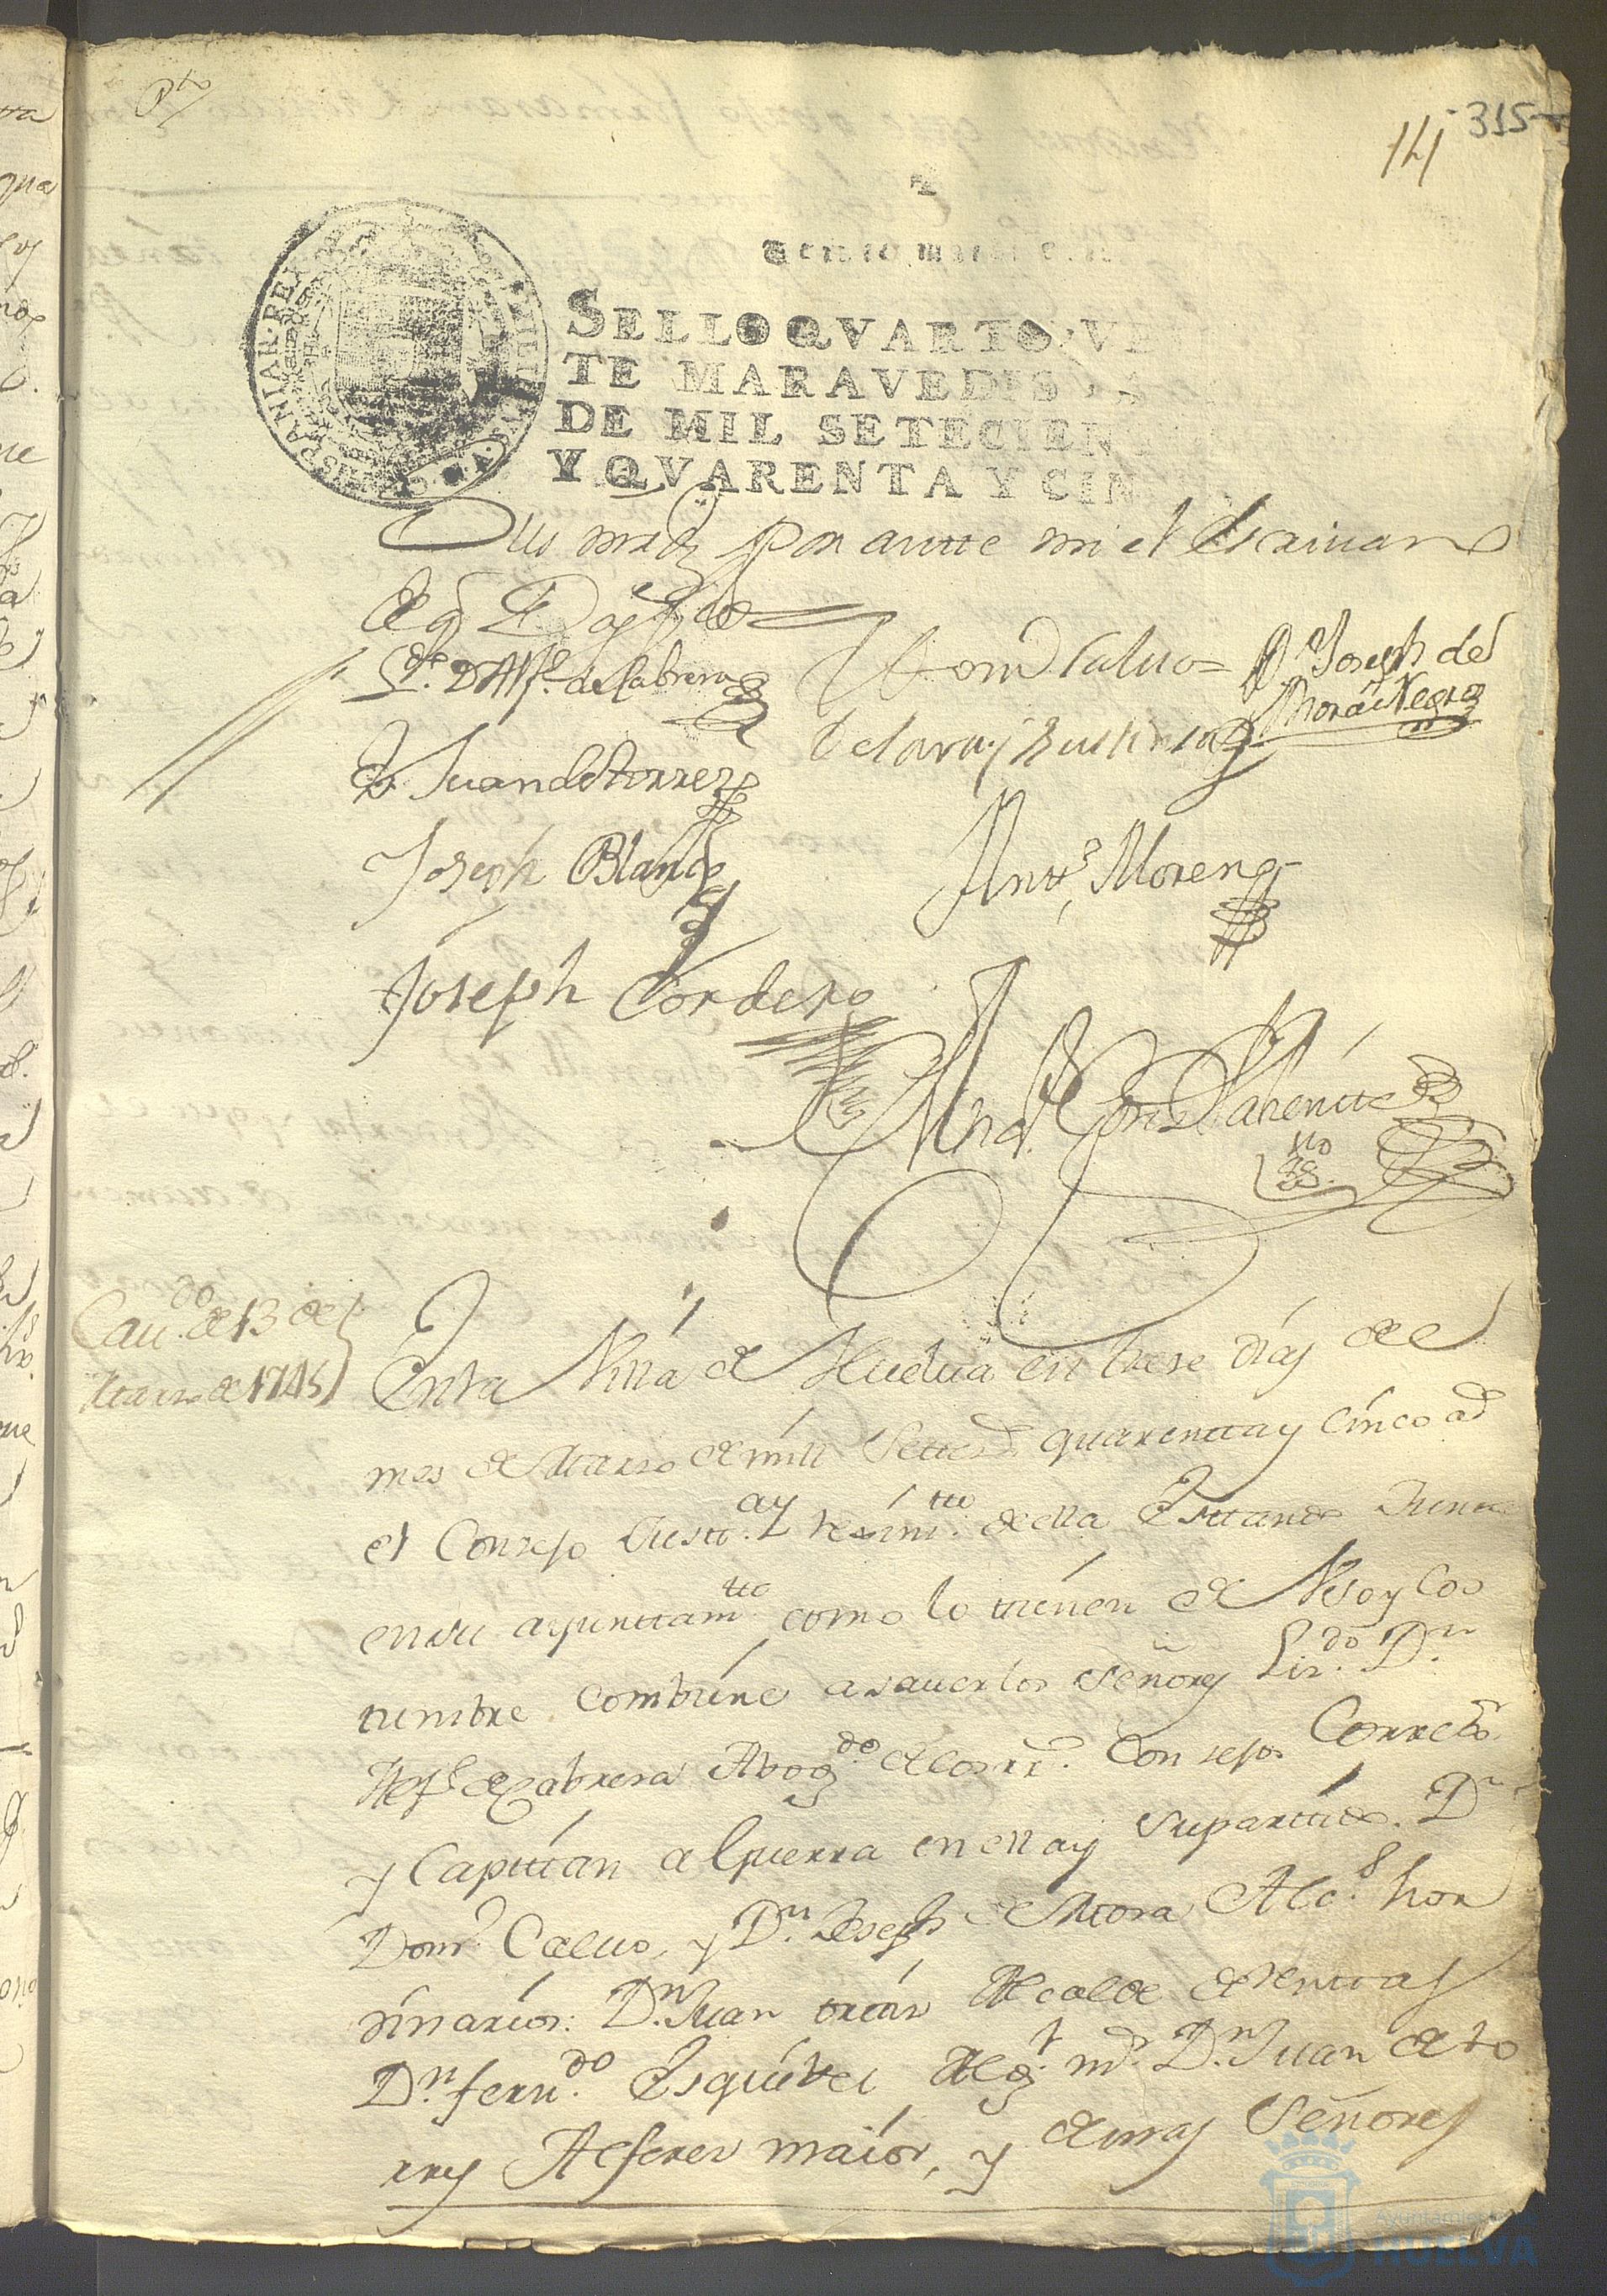 P.to
14 315
SELLO QVARTO, VE
TE MARAVEDIS
DE MIL SETECIEN
Y QVARENTA Y CIN
HISPANIAR. REX
Sus mrds por antte mi el Escrivano
de q
L.do D. Alf.o de Cabrera
Dom.o Calvo
D.n Joseph de
Mora Negro
de Lara y Bustin
D. Juan de torres
Joseph Blanco
Antt.o Moreno
Joseph Cordero
Cav.do de 13 de
Marzo de 1745
En la Villa de Huelva en trese días de el
mes de Marzo de mill Settes quarentta y cinco a.d
el Consejo Justt.a y Rexim.tto de ella Esttando Juntto
en su ayunttam.tto como lo tienen de Vso y Cos
tumbre combiene a saver los Señores Liz.do D.n
Alf.o de Cabrera Abog.do de los R.s Consejos Correx.or
y Capittán a Guerra en ella y su parttido. D.n
Dom.o Calvo, y D.n Joseph de Mora Alc.s hor
dinarios: D.n Juan ortiz Alcalde de Renttas
D.n fern.do Esquivel Alg.l m.r D.n Juan de to
rres Alferes maior, y demas Señores
Ayuntamiento de
HUELVA